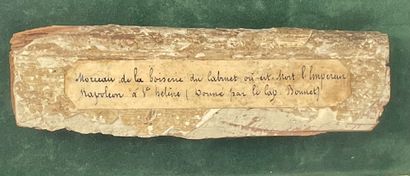 Morceau de la boiserie du Cabinet où est Mort l'Empereur
Napoléon à Ste hélène (donné par le Cap. Bonnet)